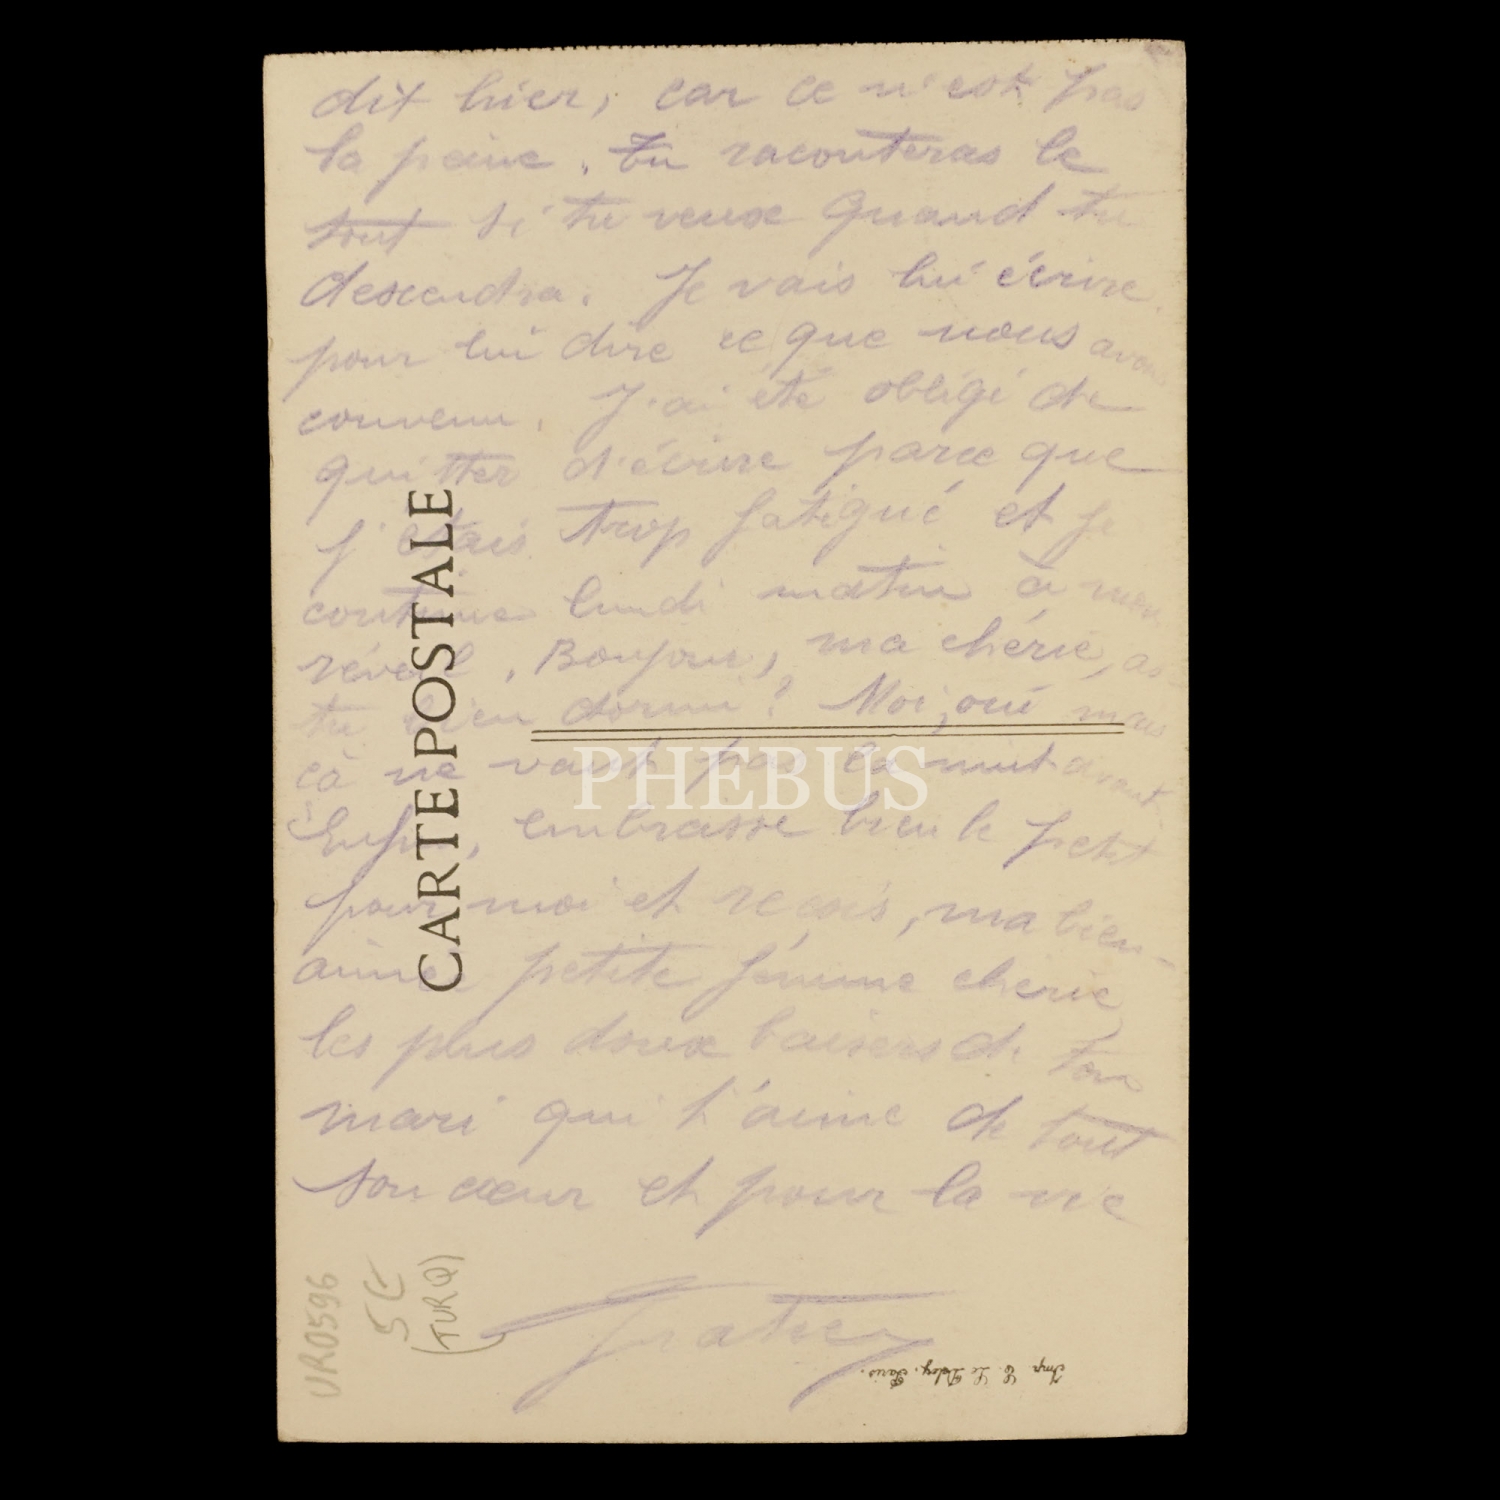 dit hier, car ce n'est pas
la peine. Tu raconteras le
tout si tu veux quand tu
descendra. Je vais lui écrire
pour lui dire ce que nous avons
convenu. J'ai été obligé de
quitter d'écrire parce que
j'étais trop fatigué et je
continue lundi matin à mon
réveil. Bonjour, ma chérie, as-
tu bien dormi? Moi, oui mais
çà ne vaut pas la nuit avant
Enfin, embrasse bien le petit
pour moi et reçois, ma bien-
aimée petite femme cherie
les plus doux baisers de ton
mari qui t'aime de tout
son cœur et pour la vie
CARTE POSTALE
PHEBUS
UR0596
5€
(TURQ)
Imp. E. Le Deley, Paris.